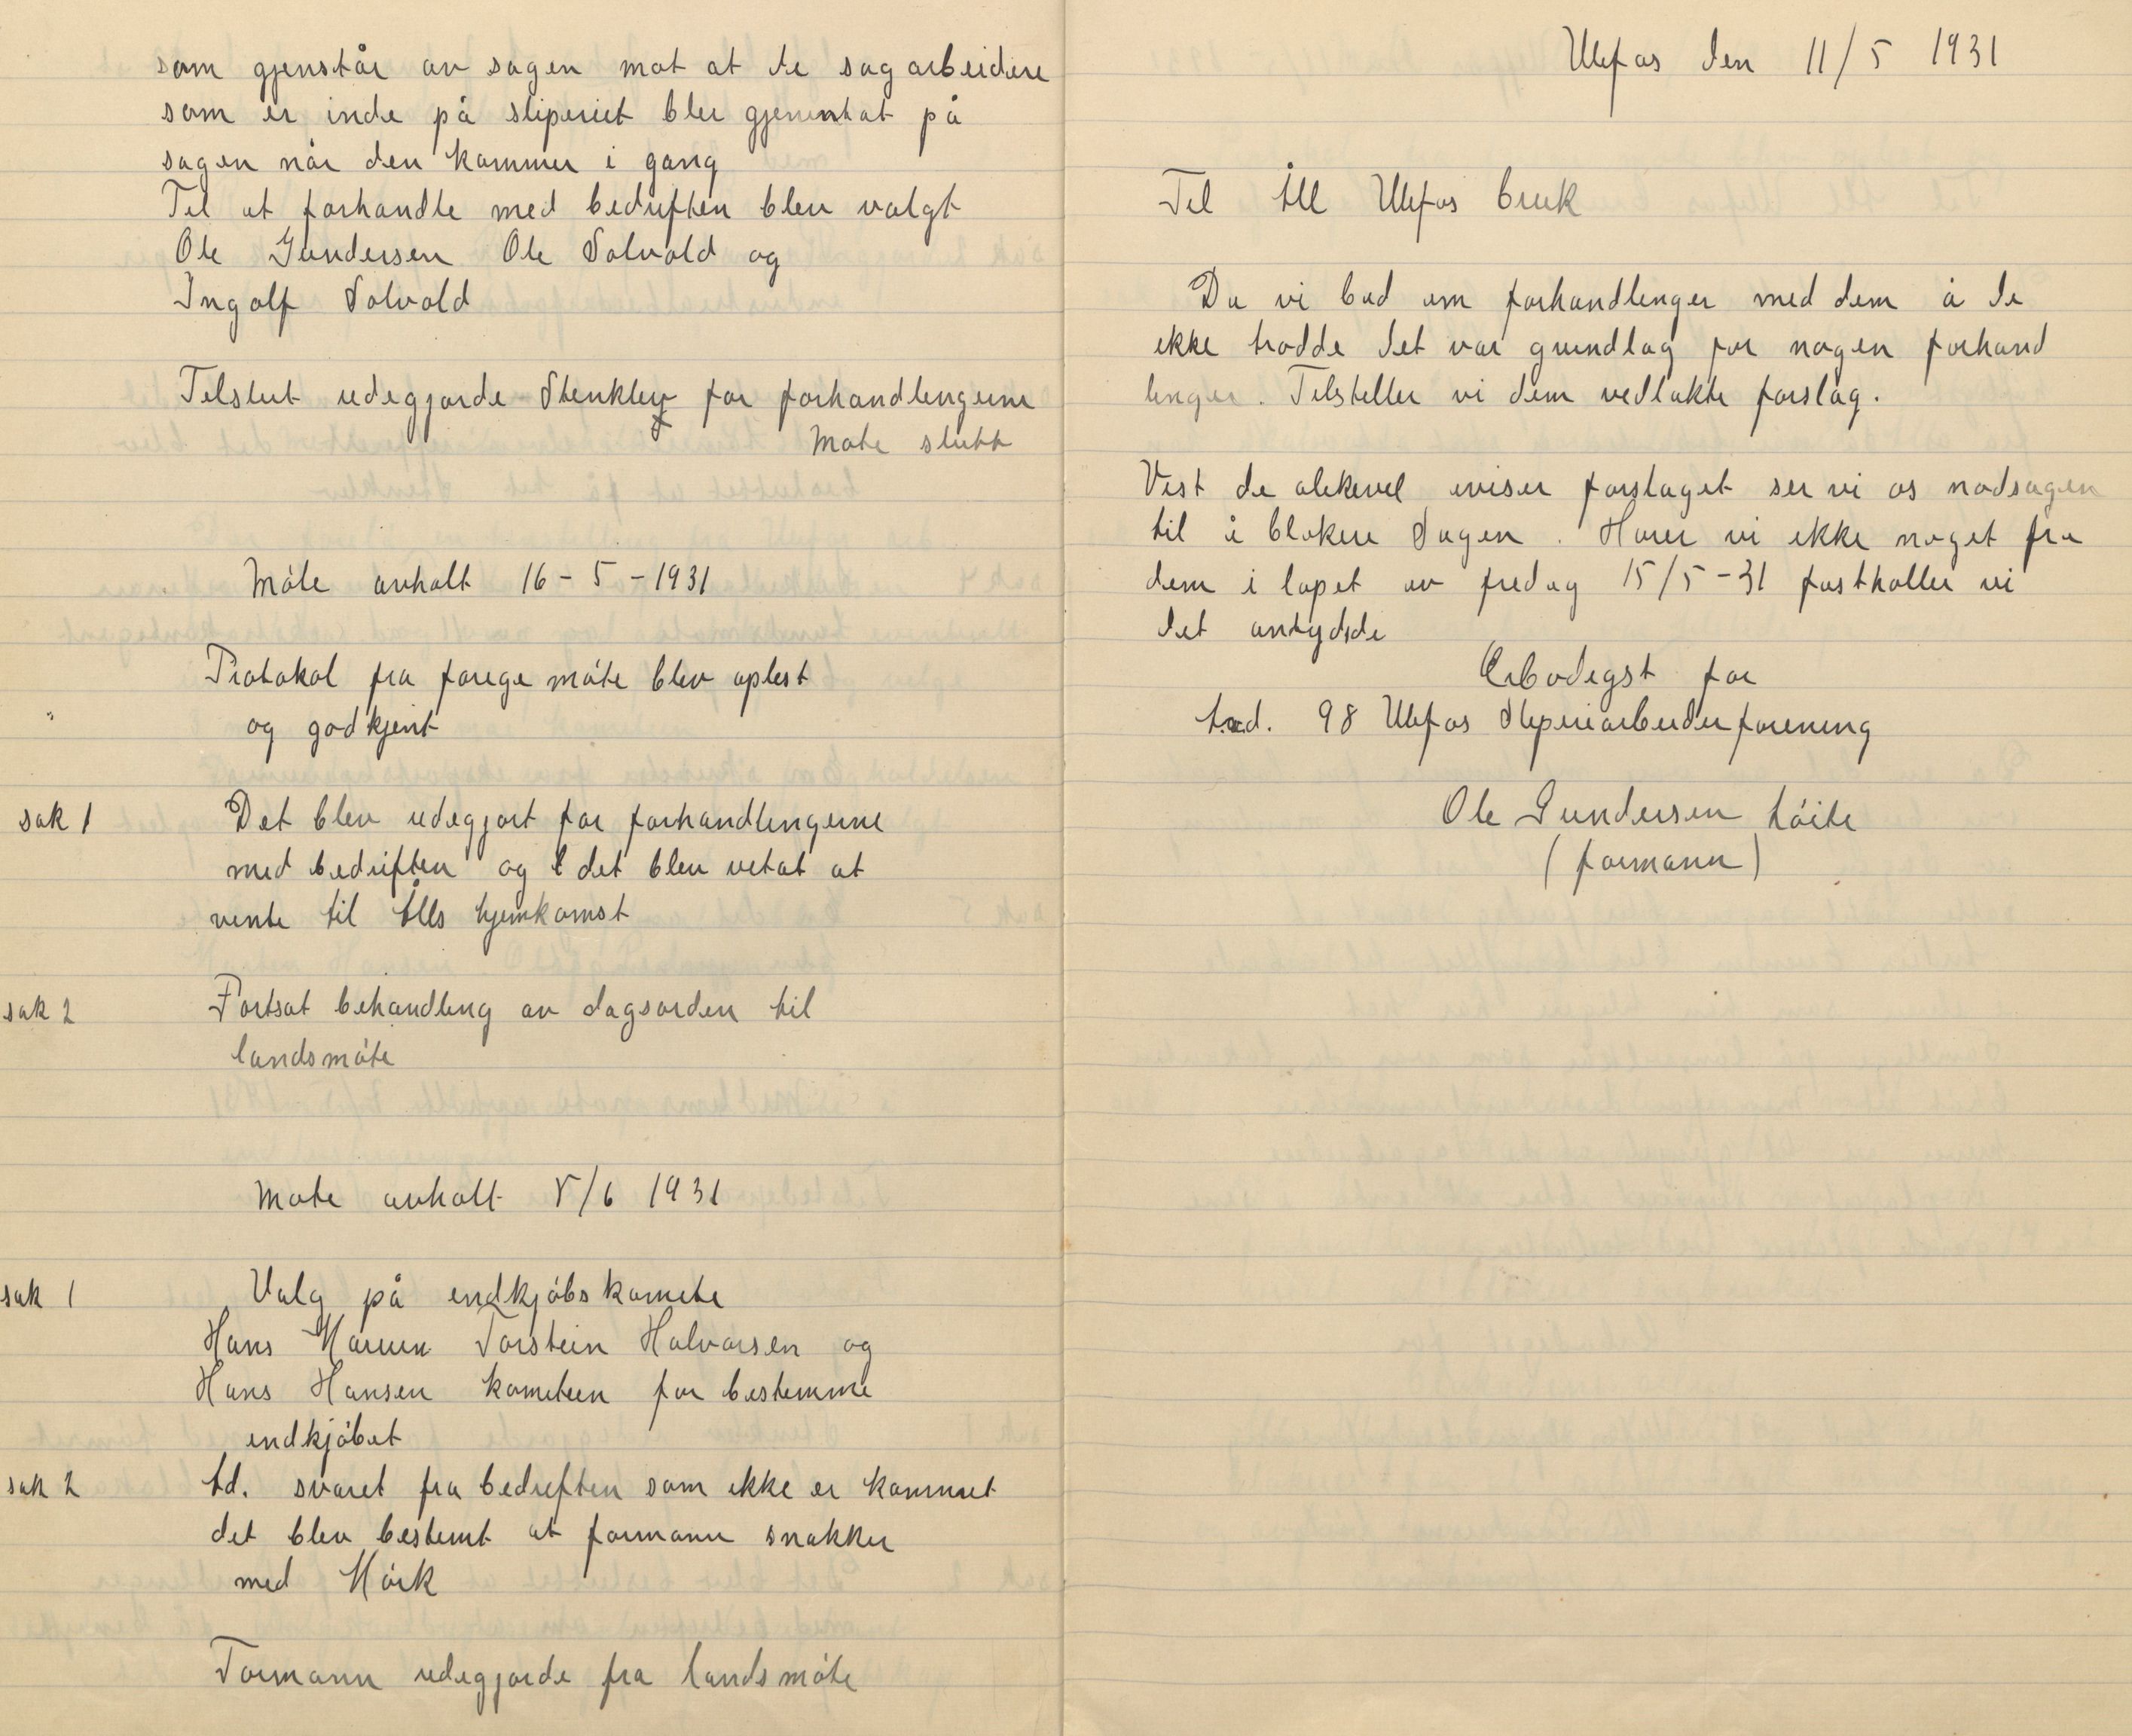 som gjenstår av sagen mot at de sagarbeidere
som er inde på sliperiet blir gjenintat på
sagen når den kommer i gang
Til at forhandle med bedriften blev valgt
Ole Gundersen Ole Solvold og
Ingolf Solvold
Tilslut redegjorde Stenklev for forhandlingerne
Møte slutt
Møte avholt 16-5-1931
Protokol fra forige møte blev oplest
og godkjent
sak 1 Det blev redegjort for forhandlingerne
med bedriften og det blev vetat at
vente til Älls hjemkomst
sak 2 Fortsat behandling av dagsorden til
landsmøte
Møte avholt 8/6 1931
sak 1 Valg på endkjøbskomete
Hans Torstein Halvorsen og
Hans Hansen kometeen for bestemme
endkjøbet
sak 2 td. svaret fra bedreften som ikke er kommet
det blev bestemt at formann snakker
med Mørk
Formann redegjorde fra landsmøte
Ulefos den 11/5 1931
Til Äll Ulefos bruk
Da vi bad om forhandlinger med dem å de
ikke trodde det var grundlag for nogen forhand
linger. Tilsteller vi dem vedlakte forslag.
Vist de alikevel aviser forslaget ser vi os nødsagen
til å blokere Sagen. Hører vi ikke noget fra
dem i løpet av fredag 15/5-31 fastholler vi
det antydsde
Ærbødigst for
avd. 98 Ulefos Sliperiarbeiderforening
Ole Gundersen Løite
(formann)